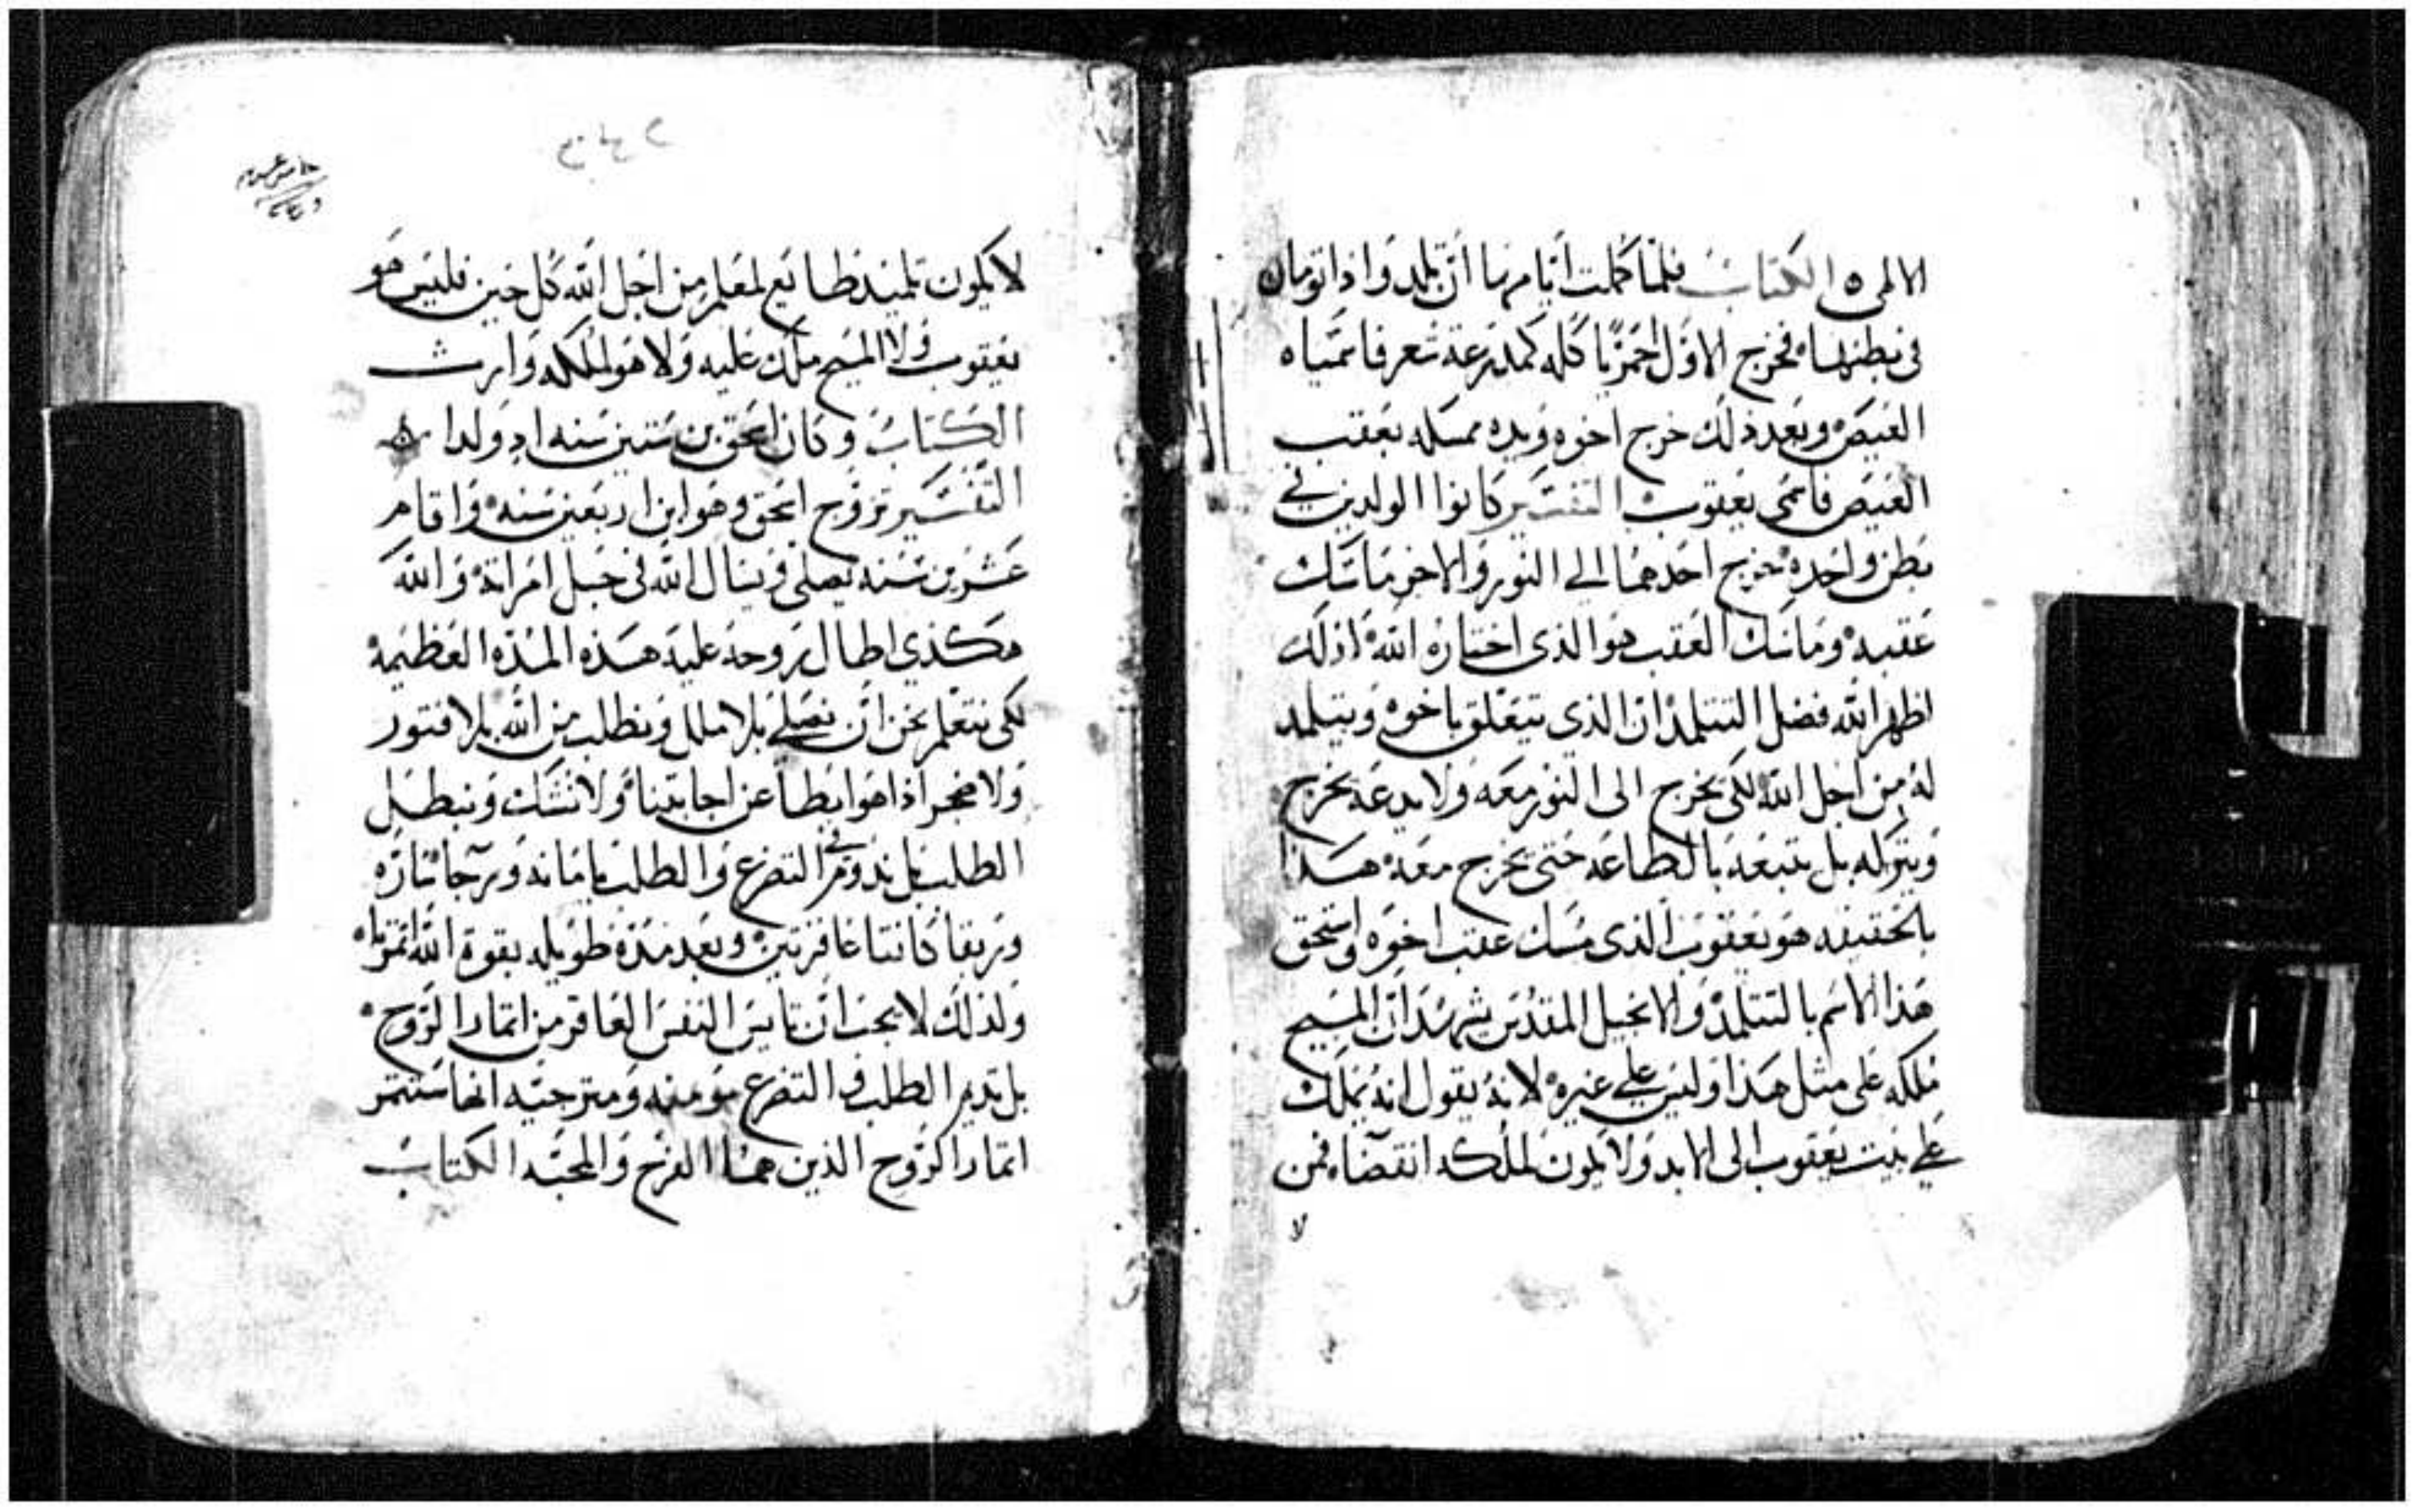 الالهى ٥ الكتاب فلما كملت أيامها أن تلد واذا تومان
فى بطنها فخرج الاول احمر كله كمدرعة شعر فاسمياه
العيص وبعد ذلك خرج اخوه ويده ممسكه بعقب
العيص فاسمى يعقوب التفسير كانوا الولدين في
بطن واحده خرج احدهما الي النور والاخر ماسك
عقبه وماسك العقب هو الذى اختاره الله اذ لك
اظهر الله فضل التتلمذ ان الذي يتعلق باخوه ويتلمد
له من اجل الله لكى يخرج الى النور معه ولا يدعه يخرج
ويتركه بل يتبعه بالطاعه حتى يخرج معه هذا
بالحقيقه هو يعقوب الذى مسك عقب اخوه واستحق
هذا الاسم بالتتلمذ والانجيل المقدس يشهد ان المسيح
ملكه على مثل هذا وليس علي غيره لانه يقول انه يملك
علي بيت يعقوب الى الابد ولا يكون لملكه انقضاء فمن
لا
لا يكون تلميذ طايع لمعلم من اجل الله كل حين فليس هو
يعقوب ولا المسيح ملك عليه ولا هو لملكه وارث
الكتاب وكان اسحق بن ستين سنه اذ ولدا
التفسير تزوج اسحق وهو ابن اربعين سنه واقام
عشرين سنه يصلى ويسال الله فى حبل امراته والله
هكذي اطال روحه عليه هذه المده العظيمه
لكى نتعلم نحن ان نصلي بلا ملل ونطلب من الله بلا فتور
ولا ضجر اذا هو ابطا عن اجابتنا ولا نشك ونبطل
الطلب بل ندوم في التضرع والطلب بامانه ورجا ساره
وربقا كانتا عاقرتين وبعد مدة طويله بقوة الله اثمرتا
ولذلك لا يجب ان تايس النفس العاقر من اثمار الروح
بل تديم الطلب والتضرع مومنه ومترجيه انها ستثمر
اثمار الروح الذين هما الفرح والمحبه الكتاب